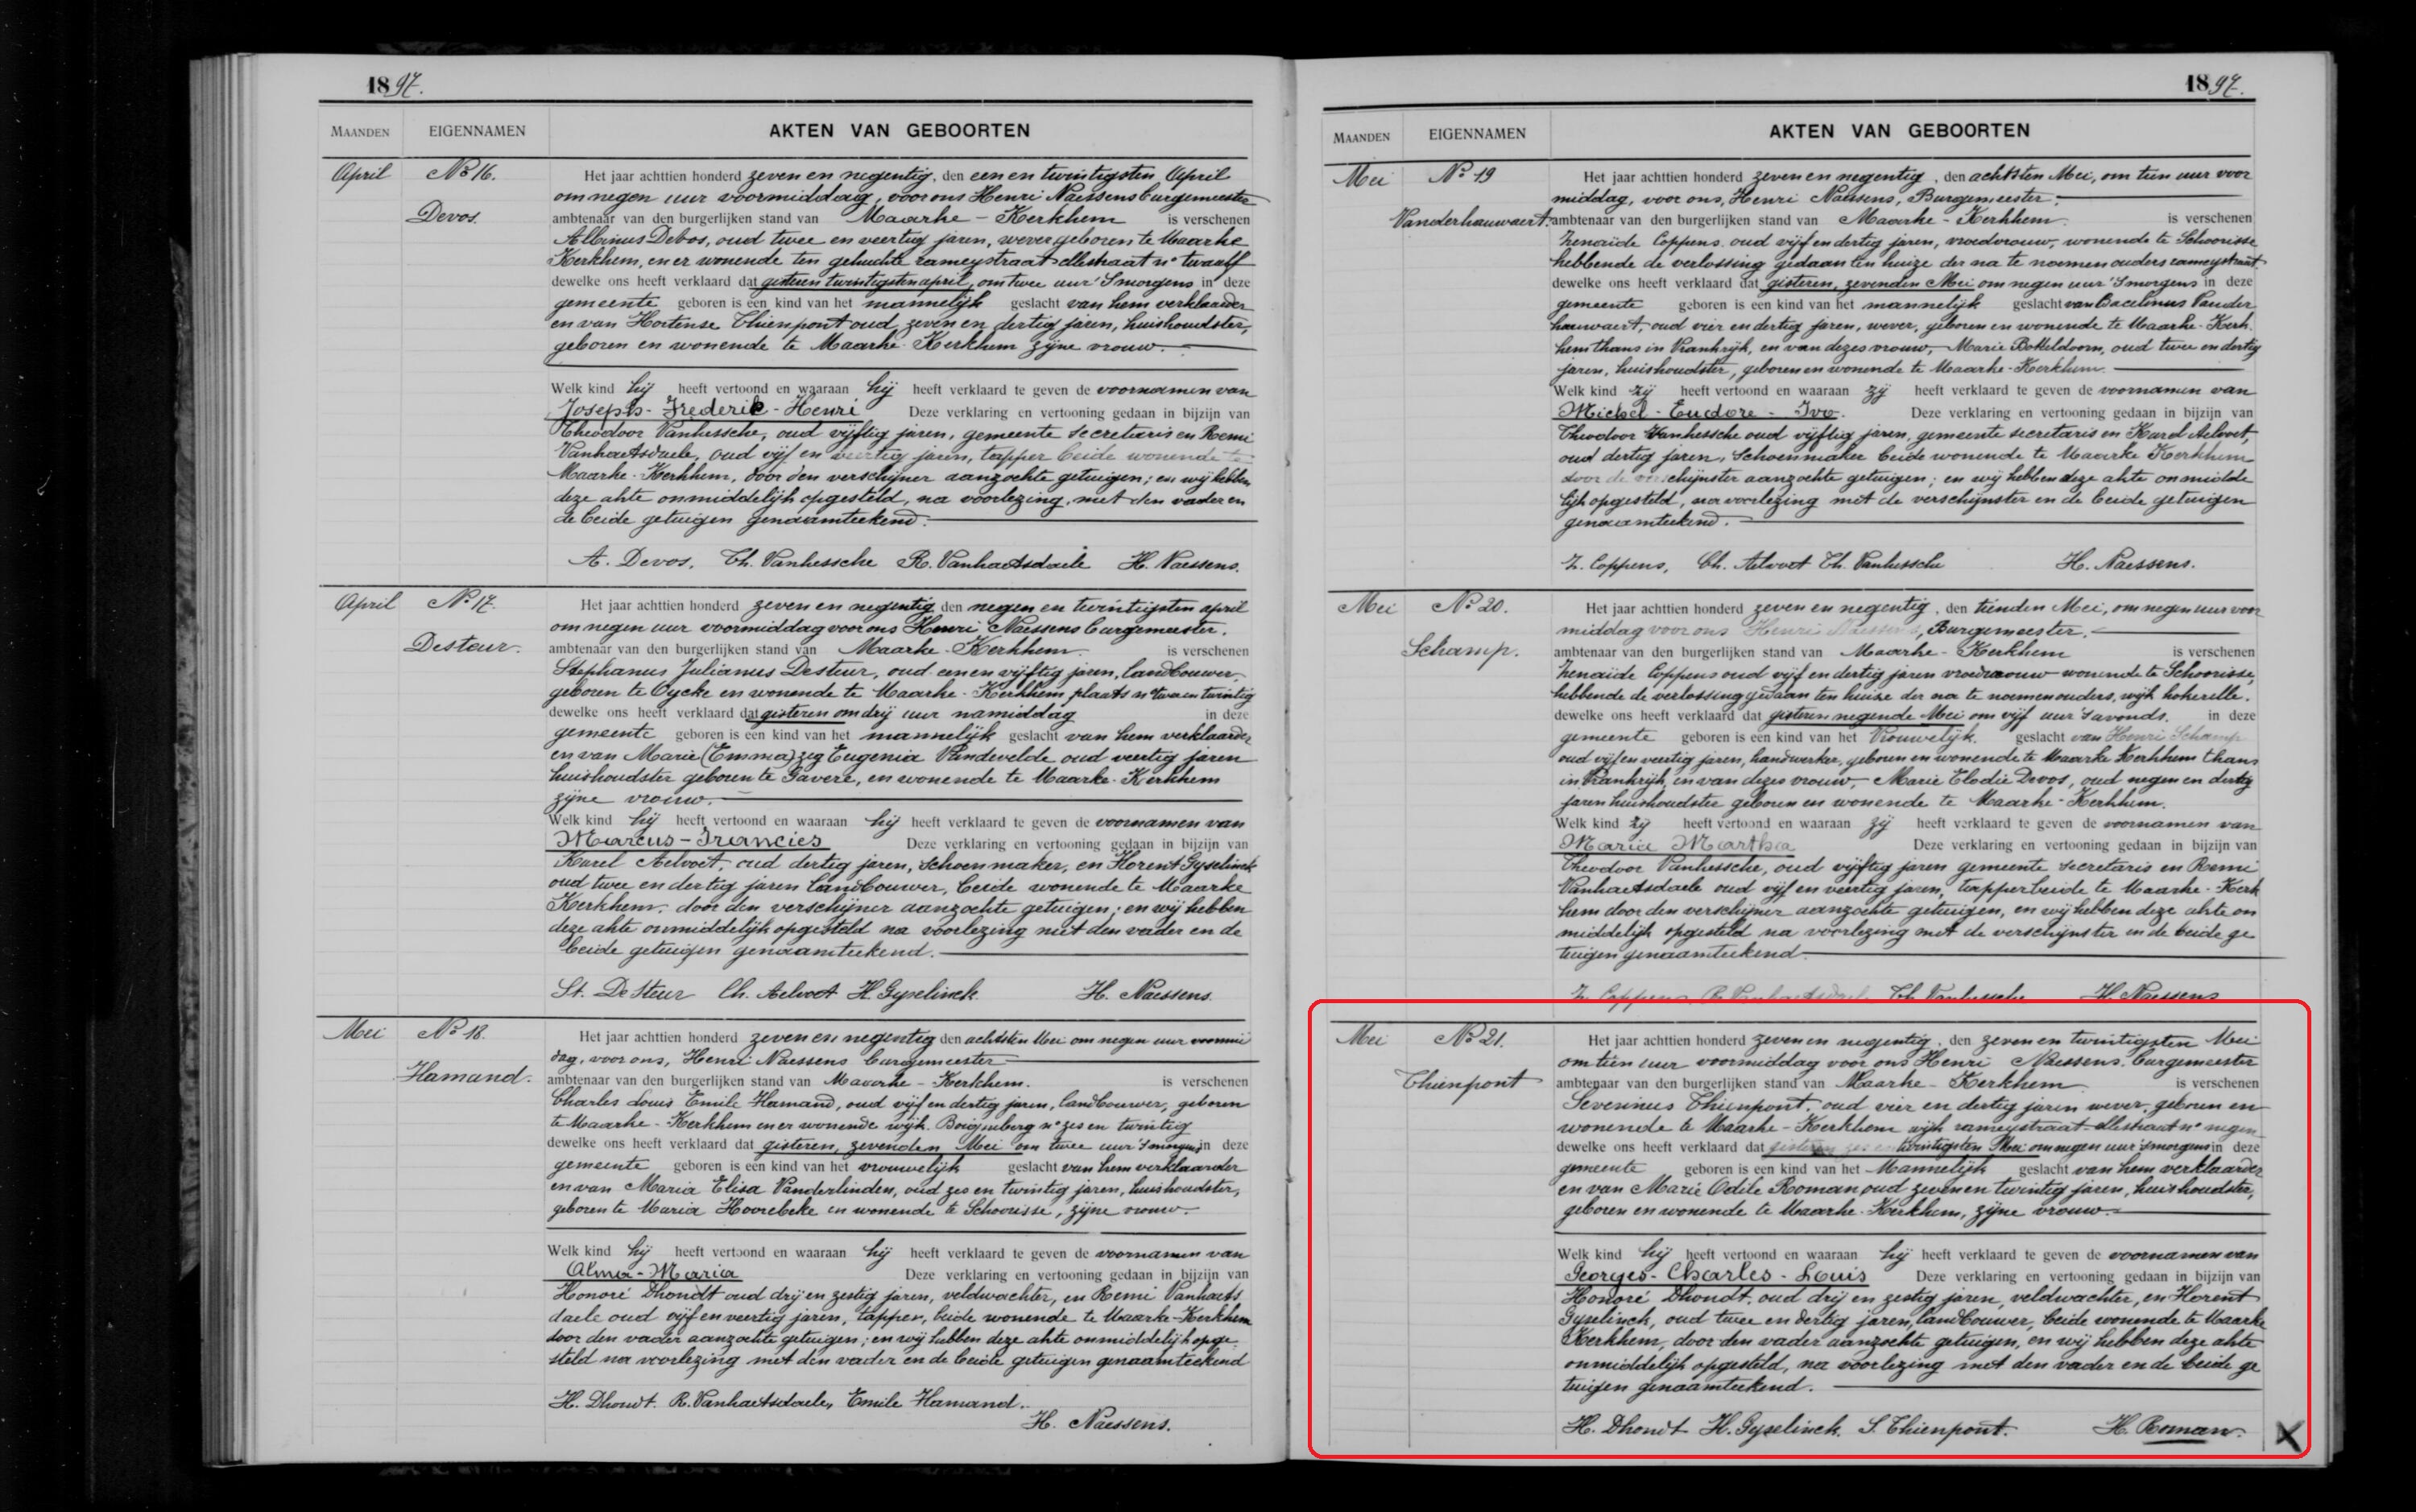 1897.
MAANDEN EIGENNAMEN AKTEN VAN GEBOORTEN
April No 16. Het jaar achttien honderd zeven en negentig, den een en twintigsten April
om negen uur voormiddag, voor ons Henri Naessens burgemeester
Devos. ambtenaar van den burgerlijken stand van Maarke - Kerkhem is verschenen
Albinus Devos, oud twee en veertig jaren, wever, geboren te Maarke
Kerkhem, en er wonende ten gehuchte rameystraat ellestraat no twaalf
dewelke ons heeft verklaard dat gisteren twintigsten april, om twee uur 's morgens in deze
gemeente geboren is een kind van het mannelijk geslacht van hem verklaarder
en van Hortense Thienpont oud zeven en dertig jaren, huishoudster,
geboren en wonende te Maarke-Kerkhem zijne vrouw.
Welk kind hij heeft vertoond en waaraan hij heeft verklaard te geven de voornamen van
Joseph - Frederik - Henri Deze verklaring en vertooning gedaan in bijzijn van
Theodoor Vanhessche, oud vijftig jaren, gemeente secretaris en Remi
Vanhaetsdaele, oud vijf en veertig jaren, tapper beide wonende te
Maarke-Kerkhem, door den verschijner aanzochte getuigen; en wij hebben
deze akte onmiddelijk opgesteld, na voorlezing, met den vader en
de beide getuigen genaamteekend.
A. Devos, Th. Vanhessche R. Vanhaetsdaele H. Naessens.
April No 17. Het jaar achttien honderd zeven en negentig den negen en twintigsten april
om negen uur voormiddag voor ons Henri Naessens burgemeester,
Desteur. ambtenaar van den burgerlijken stand van Maarke-Kerkhem is verschenen
Stephanus Julianus Desteur, oud een en vijftig jaren, landbouwer,
geboren te Oycke en wonende te Maarke-Kerkhem plaats no twee en twintig
dewelke ons heeft verklaard dat gisteren om drij uur namiddag in deze
gemeente geboren is een kind van het mannelijk geslacht van hem verklaarder
en van Marie (Emma) zeg Eugenia Vandevelde oud veertig jaren
huishoudster geboren te Gavere, en wonende te Maarke-Kerkhem
zijne vrouw.
Welk kind hij heeft vertoond en waaraan hij heeft verklaard te geven de voornamen van
Marcus-Francies Deze verklaring en vertooning gedaan in bijzijn van
Karel Aelvoet, oud dertig jaren, schoenmaker, en Florent Gyselinck
oud twee en dertig jaren landbouwer, beide wonende te Maarke
Kerkhem, door den verschijner aanzochte getuigen; en wij hebben
deze akte onmiddelijk opgesteld na voorlezing met den vader en de
beide getuigen genaamteekend.
St. De Steur Ch. Aelvoet H. Gyselinck. H. Naessens.
Mei No 18. Het jaar achttien honderd zeven en negentig den achtsten Mei om negen uur voormid
dag, voor ons, Henri Naessens burgemeester
Hamand. ambtenaar van den burgerlijken stand van Maarke - Kerkhem. is verschenen
Charles Louis Emile Hamand, oud vijf en dertig jaren, landbouwer, geboren
te Maarke-Kerkhem en er wonende wijk no zes en twintig
dewelke ons heeft verklaard dat gisteren, zevenden Mei om twee uur 's morgens in deze
gemeente geboren is een kind van het vrouwelijk geslacht van hem verklaarder
en van Maria Elisa Vanderlinden, oud zes en twintig jaren, huishoudster,
geboren te Maria Hoorebeke en wonende te Schoorisse, zijne vrouw.
Welk kind hij heeft vertoond en waaraan hij heeft verklaard te geven de voornamen van
Alma-Maria Deze verklaring en vertooning gedaan in bijzijn van
Honoré Dhondt oud drij en zestig jaren, veldwachter, en Remi Vanhaets
daele oud vijf en veertig jaren, tapper, beide wonende te Maarke-Kerkhem
door den vader aanzochte getuigen; en wij hebben deze akte onmiddelijk opge
steld na voorlezing met den vader en de beide getuigen genaamteekend
H. Dhondt. R. Vanhaetsdaele, Emile Hamand.
H. Naessens.
1897.
MAANDEN EIGENNAMEN AKTEN VAN GEBOORTEN
Mei No 19 Het jaar achttien honderd zeven en negentig, den achtsten Mei, om tien uur voor
middag, voor ons, Henri Naessens, Burgemeester,
Vanderhauwaert. ambtenaar van den burgerlijken stand van Maarke - Kerkhem is verschenen
Zenaïde Coppens oud vijf en dertig jaren, vroedvrouw, wonende te Schoorisse
hebbende de verlossing gedaan ten huize der na te noemen ouders rameystraat
dewelke ons heeft verklaard dat gisteren, zevenden Mei om negen uur 's morgens in deze
gemeente geboren is een kind van het mannelijk geslacht van Vander
hauwaert, oud vier en dertig jaren, wever, geboren en wonende te Maarke-Kerk
hem thans in Frankrijk, en van dezes vrouw, Marie Botteldoorn, oud twee en dertig
jaren, huishoudster, geboren en wonende te Maarke-Kerkhem.
Welk kind zij heeft vertoond en waaraan zij heeft verklaard te geven de voornamen van
Michel - Eudore - Ivo. Deze verklaring en vertooning gedaan in bijzijn van
Theodoor Vanhessche oud vijftig jaren, gemeente secretaris en Karel Aelvoet,
oud dertig jaren, schoenmaker beide wonende te Maarke Kerkhem
door de verschijnster aanzochte getuigen; en wij hebben deze akte onmidde
lijk opgesteld, na voorlezing met de verschijnster en de beide getuigen
genaamteekend.
Z. Coppens, Ch. Aelvoet Th. Vanhessche H. Naessens.
Mei No 20. Het jaar achttien honderd zeven en negentig, den tienden Mei, om negen uur voor
middag voor ons Henri Naessens, Burgemeester,
Schamp. ambtenaar van den burgerlijken stand van Maarke - Kerkhem is verschenen
Zenaïde Coppens oud vijf en dertig jaren vroedvrouw wonende te Schoorisse,
hebbende de verlossing gedaan ten huize der na te noemen ouders, wijk hokerelle.
dewelke ons heeft verklaard dat gisteren negende Mei om vijf uur 's avonds. in deze
gemeente geboren is een kind van het Vrouwelijk. geslacht van Henri Schamp
oud vijf en veertig jaren, handwerker, geboren en wonende te Maarke Kerkhem thans
in Frankrijk, en van dezes vrouw, Marie Elodie Devos, oud negen en dertig
jaren huishoudster geboren en wonende te Maarke-Kerkhem.
Welk kind zij heeft vertoond en waaraan zij heeft verklaard te geven de voornamen van
Maria Martha Deze verklaring en vertooning gedaan in bijzijn van
Theodoor Vanhessche, oud vijftig jaren gemeente secretaris en Remi
Vanhaetsdaele oud vijf en veertig jaren, tapper beide te Maarke-Kerk
hem door den verschijner aanzochte getuigen, en wij hebben deze akte on
middelijk opgesteld na voorlezing met de verschijnster en de beide ge
tuigen genaamteekend
Z. Coppens, R. Vanhaetsdaele Th. Vanhessche H. Naessens
Mei No 21. Het jaar achttien honderd zeven en negentig, den zeven en twintigsten Mei
om tien uur voormiddag voor ons Henri Naessens, burgemeester
Thienpont ambtenaar van den burgerlijken stand van Maarke - Kerkhem is verschenen
Severinus Thienpont, oud vier en dertig jaren wever, geboren en
wonende te Maarke-Kerkhem wijk rameystraat ellestraat no negen
dewelke ons heeft verklaard dat gisteren zes en twintigsten Mei om negen uur 's morgens in deze
gemeente geboren is een kind van het Mannelijk geslacht van hem verklaarder
en van Marie Odile Roman oud zeven en twintig jaren, huishoudster,
geboren en wonende te Maarke-Kerkhem, zijne vrouw.
Welk kind hij heeft vertoond en waaraan hij heeft verklaard te geven de voornamen van
Georges - Charles - Louis Deze verklaring en vertooning gedaan in bijzijn van
Honoré Dhondt, oud drij en zestig jaren, veldwachter, en Florent
Gyselinck, oud twee en dertig jaren, landbouwer, beide wonende te Maarke
Kerkhem, door den vader aanzochte getuigen, en wij hebben deze akte
onmiddelijk opgesteld, na voorlezing met den vader en de beide ge
tuigen genaamteekend.
H. Dhondt H. Gyselinck. S. Thienpont. H. Roman.
X